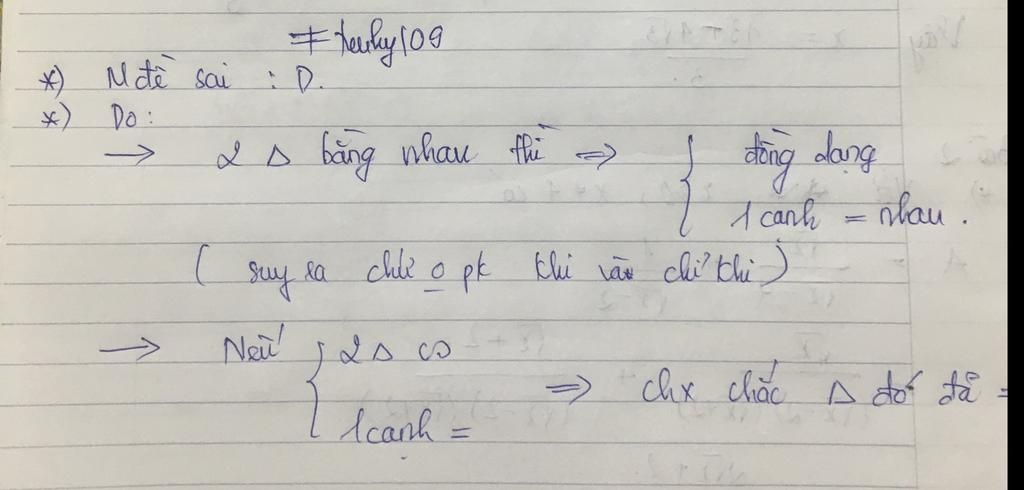 #tenhy109
*) M đề sai : D.
*) Do:
→ 2 Δ bằng nhau thì ⇒ { đồng dạng
1 cạnh = nhau.
( suy ra chứ o pk khi vào chỉ khi )
→ Nếu { 2 Δ ∽
1 cạnh = ⇒ chx chắc Δ đó đã =